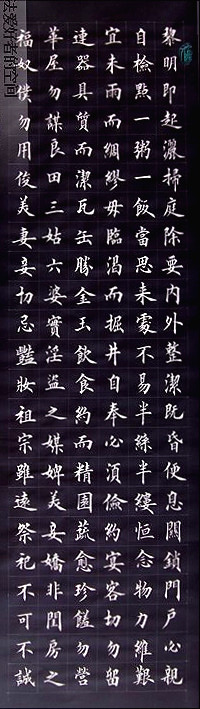 黎明即起灑掃庭除要內外整潔既昏便息關鎖門戶必親
自檢點一粥一飯當思来處不易半絲半縷恒念物力維艱
宜未雨而綢繆毋臨渴而掘井自奉必須儉約宴客切勿留
連器具質而潔瓦缶勝金玉飲食約而精園蔬愈珍饈勿營
華屋勿謀良田三姑六婆實淫盜之媒婢美妾嬌非閨房之
福奴僕勿用俊美妻妾切忌豔妝祖宗雖遠祭祀不可不誠
去爱好者的空间